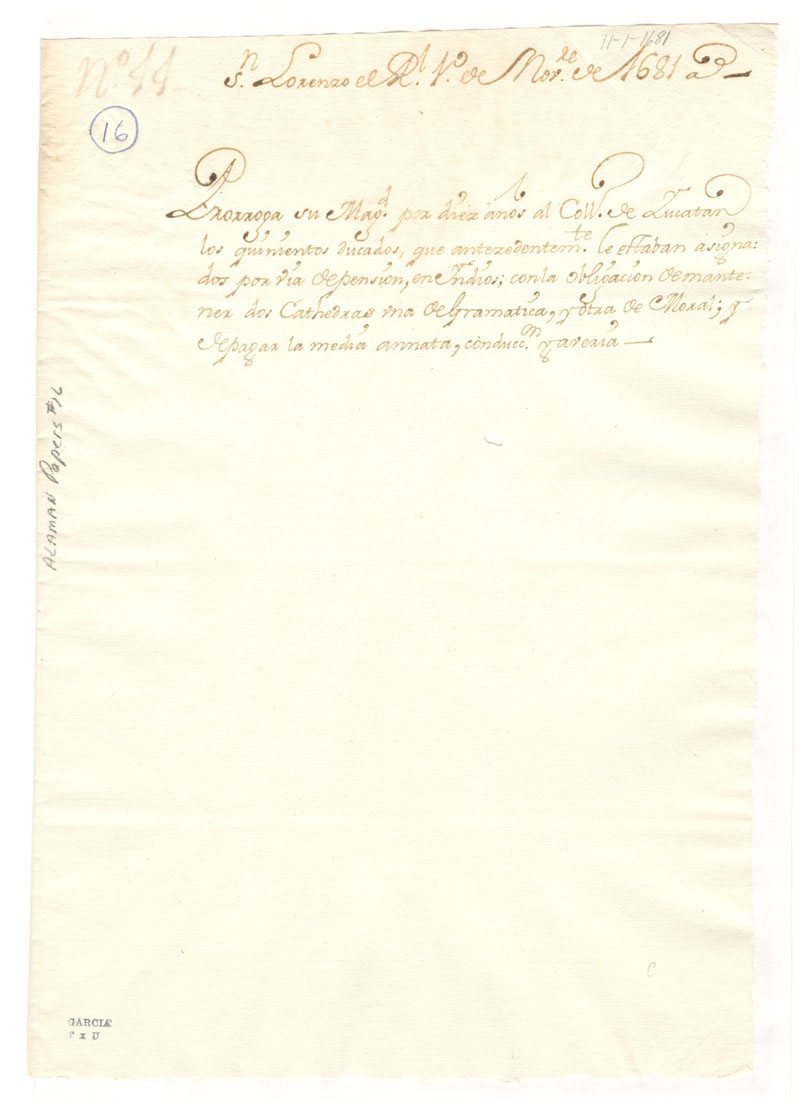 11-1-1681
Nº 44
Sn. Lorenzo el Rl. 1º de Nov.re de 1681 as
16
Prorroga su Magd. por diez años al Coll.º de Yucatan
los quinientos ducados, que antezedentem.te le estaban asigna:
dos por via de pension, en Indios; con la obligacion de mante-
ner dos Cathedras vna de Gramatica, y otra de Moral; y
de pagar la media annata, conducc.n y averia
ALAMAN Papers #16
GARCIA
T x U